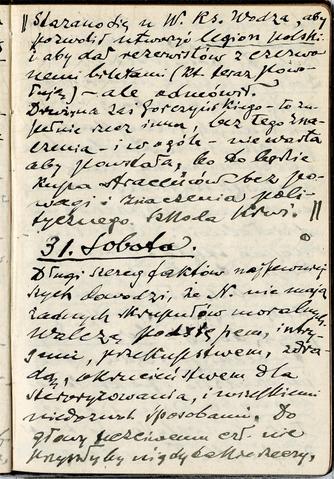 || Starano się u W. Ks. Wodza, aby
pozwolił utworzyć legion polski
i aby dał rezerwistów z czerwo-
nemi biletami (kt. teraz powo-
łują) — ale odmówił.
Drużyna zaś Gorczyńskiego — to zu-
pełnie rzecz inna, bez tego zna-
czenia — i w ogóle — nie warta
aby powstała, bo to będzie
kupa straceńców bez po-
wagi i znaczenia poli-
tycznego. Szkoda krwi. ||
31. Sobota.
Długi szereg faktów najpewniej-
szych dowodzi, że N. nie mają
żadnych skrupułów moralnych.
Walczą podstępem, intry-
gami, przekupstwem, zdra-
dą, okrucieństwem dla
sterroryzowania, i wszelkimi
niedozwol. sposobami. Do
głowy uczciwemu czł. nie
przyszłyby nigdy takie rzeczy,